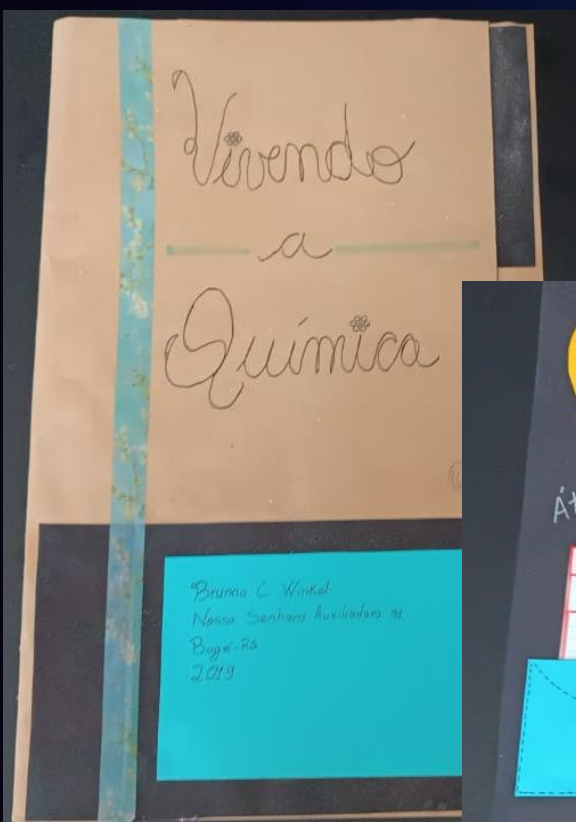 Vivendo
a
Química
Brunna C Winkel
Nossa Senhora Auxiliadora
Bagé-RS
2019